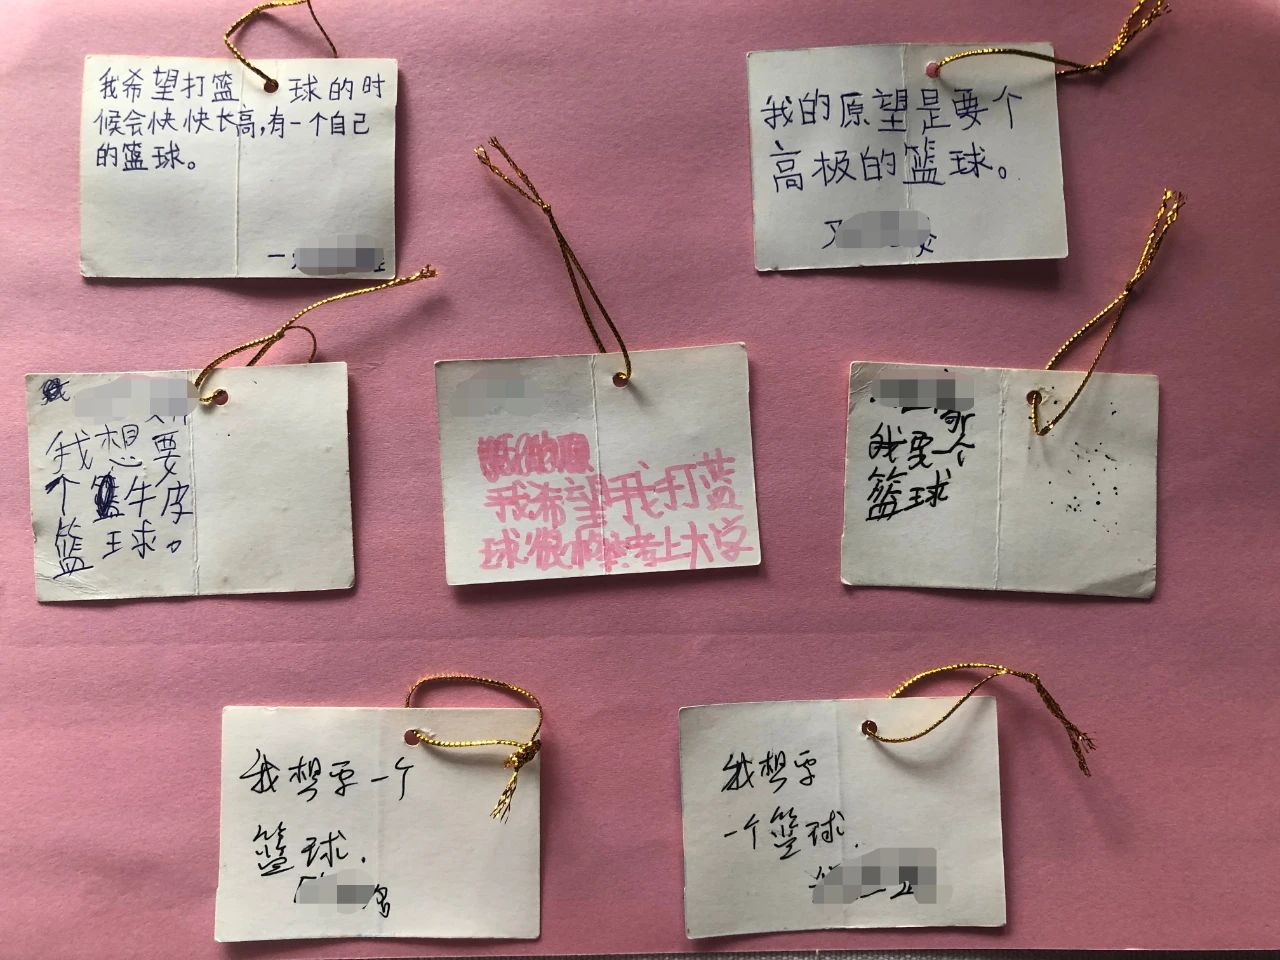 我希望打篮球的时
候会快快长高,有一个自己
的篮球。
我的原望是要个
高极的篮球。
我想要
个牛皮
篮球。
我希望我打蓝
球很 考上大学
我要一个
篮球
我想要一个
篮球.
我想要
一个篮球.